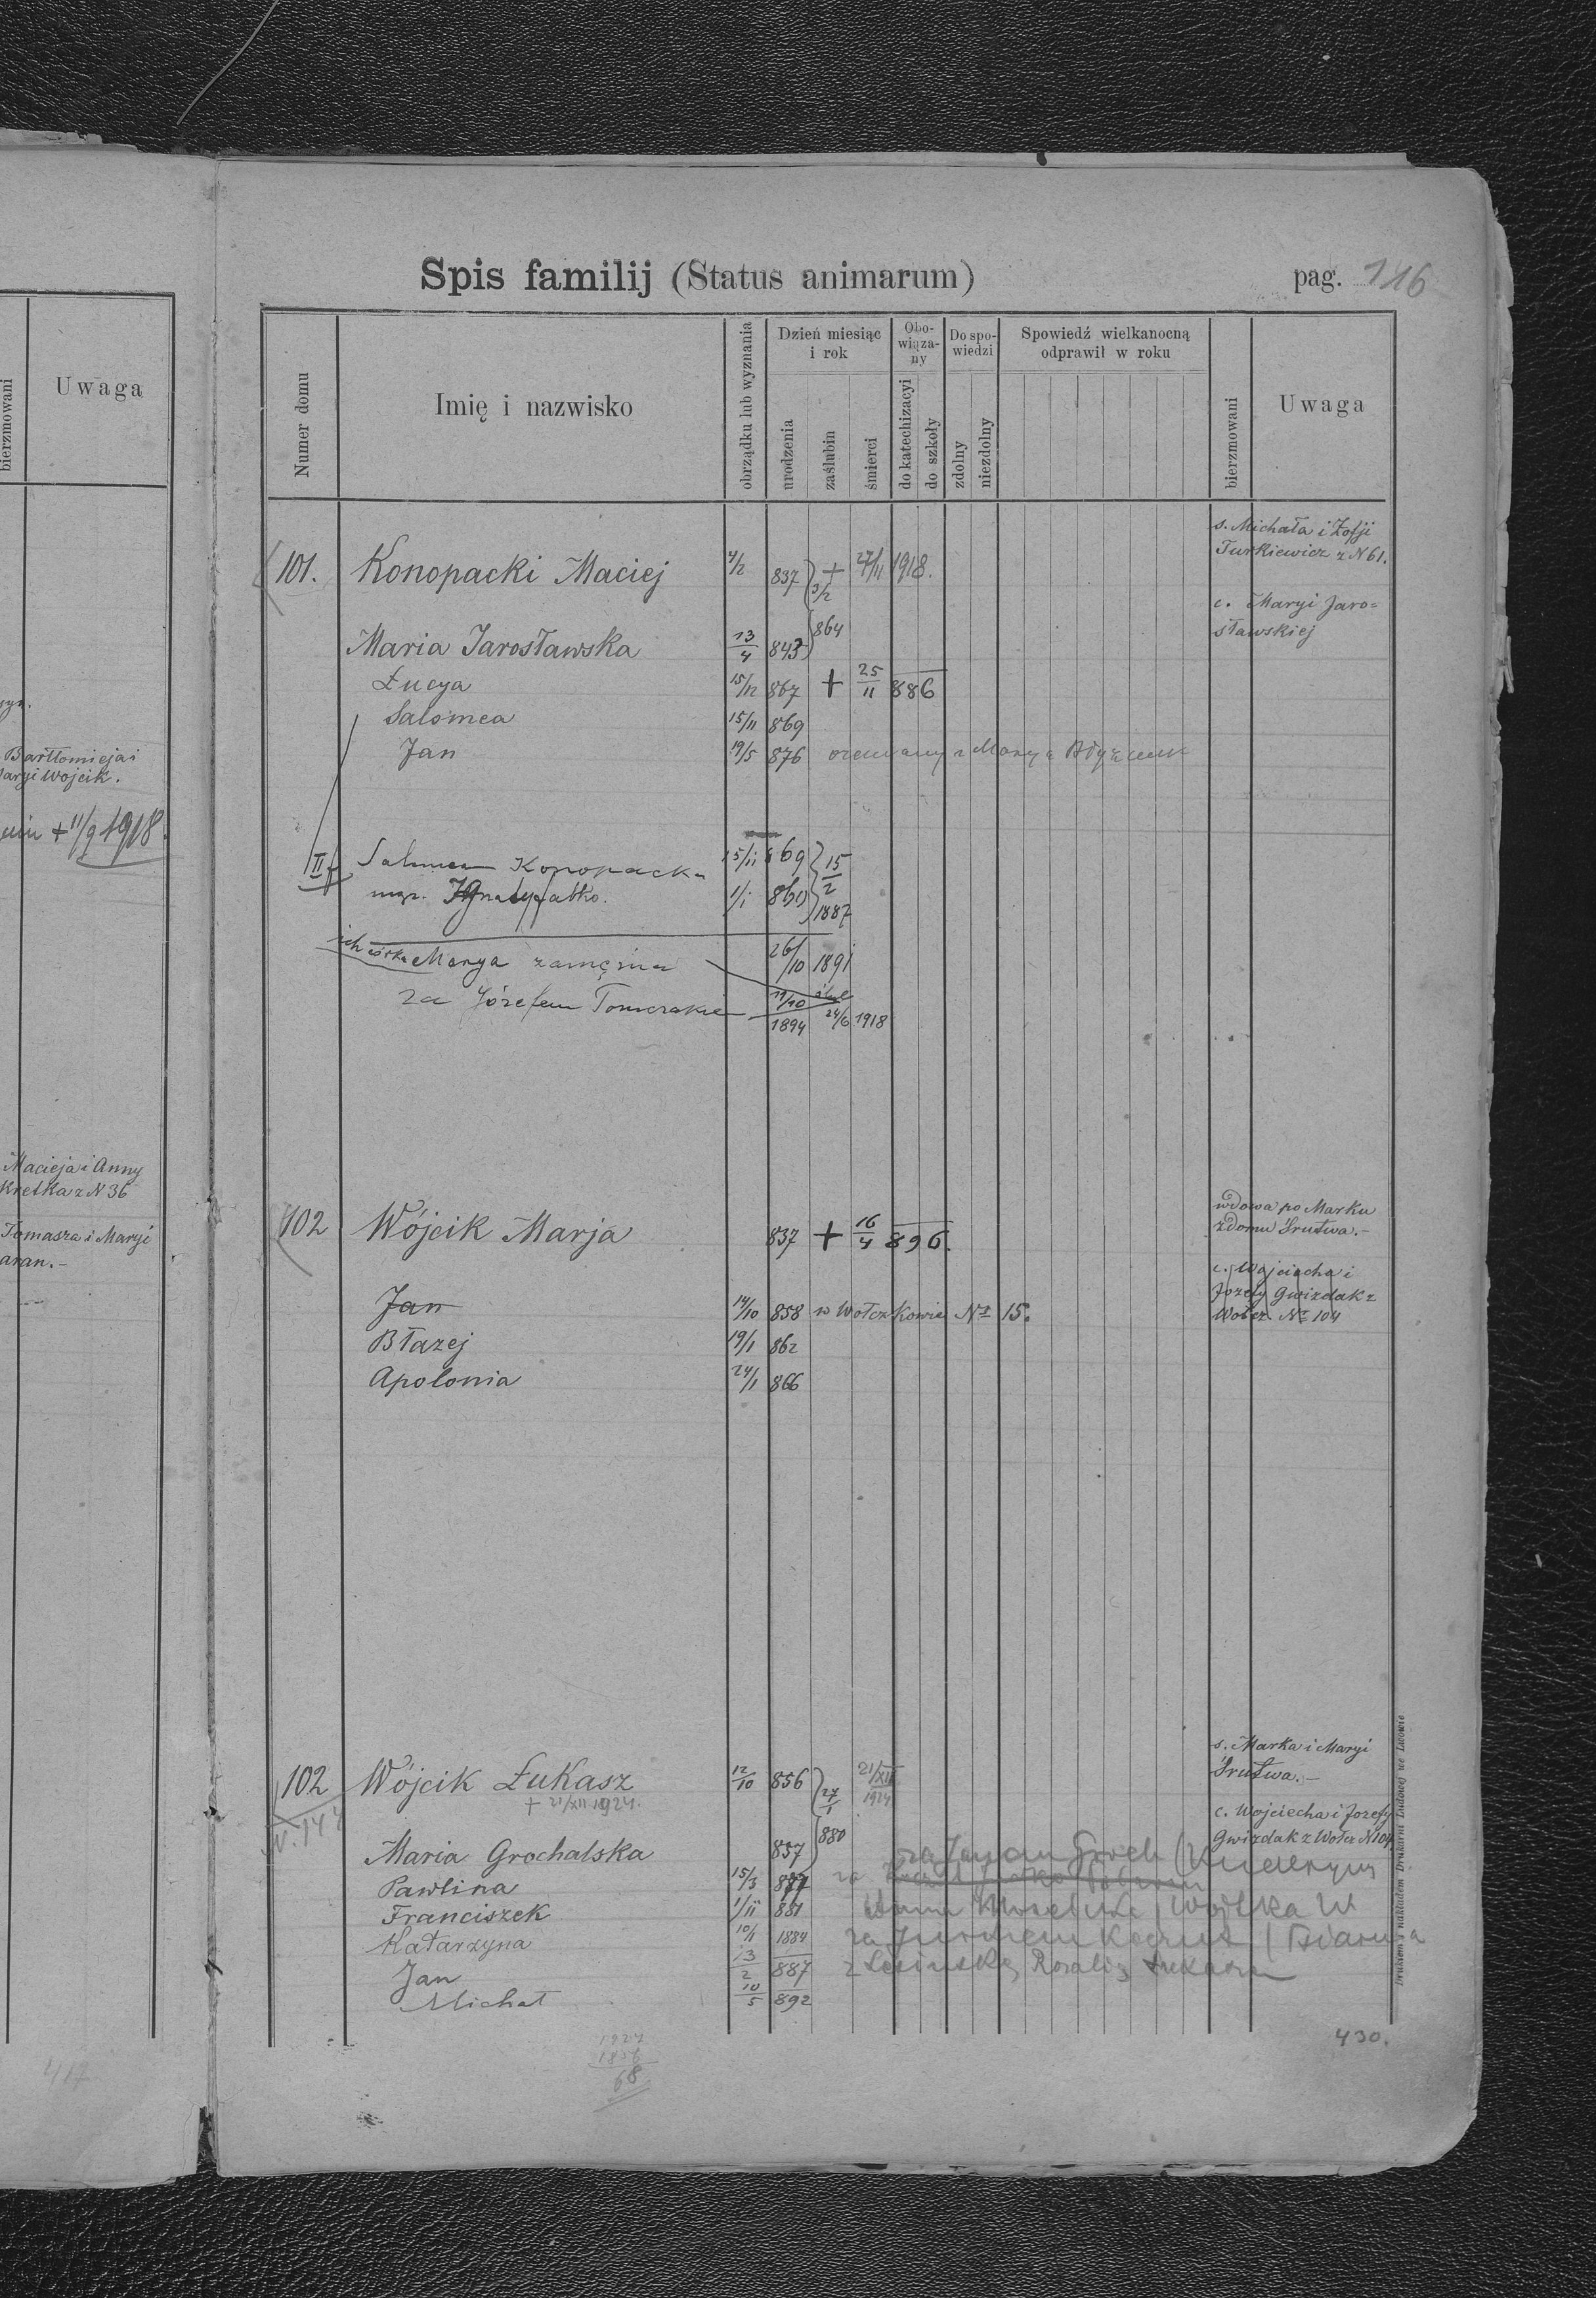 bierzmowani
Uwaga
Bartłomieja i
Maryi Wojcik.
+ 11/9 1918.
Macieja i Anny
Kretka z N 36
Tomasza i Maryi
417
Spis familij (Status animarum)
pag. 116
Numer domu
Imię i nazwisko
obrządku lub wyznania
Dzień miesiąc i rok
urodzenia
zaślubin
śmierci
Obo-wiąza-ny
do katechizacyi
do szkoły
Do spo-wiedzi
zdolny
niezdolny
Spowiedź wielkanocną odprawił w roku
bierzmowani
Uwaga
s. Michała i Zofji
Turkiewicz z N 61.
101. Konopacki Maciej 4/2 837 + 27/11 1918.
3/2 864
c. Maryi Jaro=
sławskiej
Maria Jarosławska 13/4 843
Łucya 15/12 867 + 25/11 886
Salomea 15/11 869
Jan 19/5 876 Marya
II Salomea Konopacka 15/11 869 15/2 1887
1/1 860
ich córka Marya zamężna 26/10 1891
za Józefem 11/10 1894 ślub 24/6 1918
102 Wójcik Marja 837 + 16/4 896.
wdowa po Marku
z domu Śrutwa.-
c. Wojciecha i
Jozefy Gwizdak z
Wołcz. No 104
Jan 14/10 858 w Wołczkowie No 15.
Błazej 19/1 862
Apolonia 24/1 866
s. Marka i Maryi
Śrutwa.-
102 Wójcik Łukasz 12/10 856 27/1 880 21/XII 1924
+ 21/XII 1924.
N. 144
c. Wojciecha i Jozefy
Gwizdak z Wołcz N 104
Maria Grochalska 857
Pawlina 15/3 za
Franciszek 1/11 881
Katarzyna 10/1 1884 za
Jan 13/2 887 z Rozalią
Michał 10/5 892
1924
1856
68
430.
Drukiem i nakładem Drukarni Ludowej we Lwowie